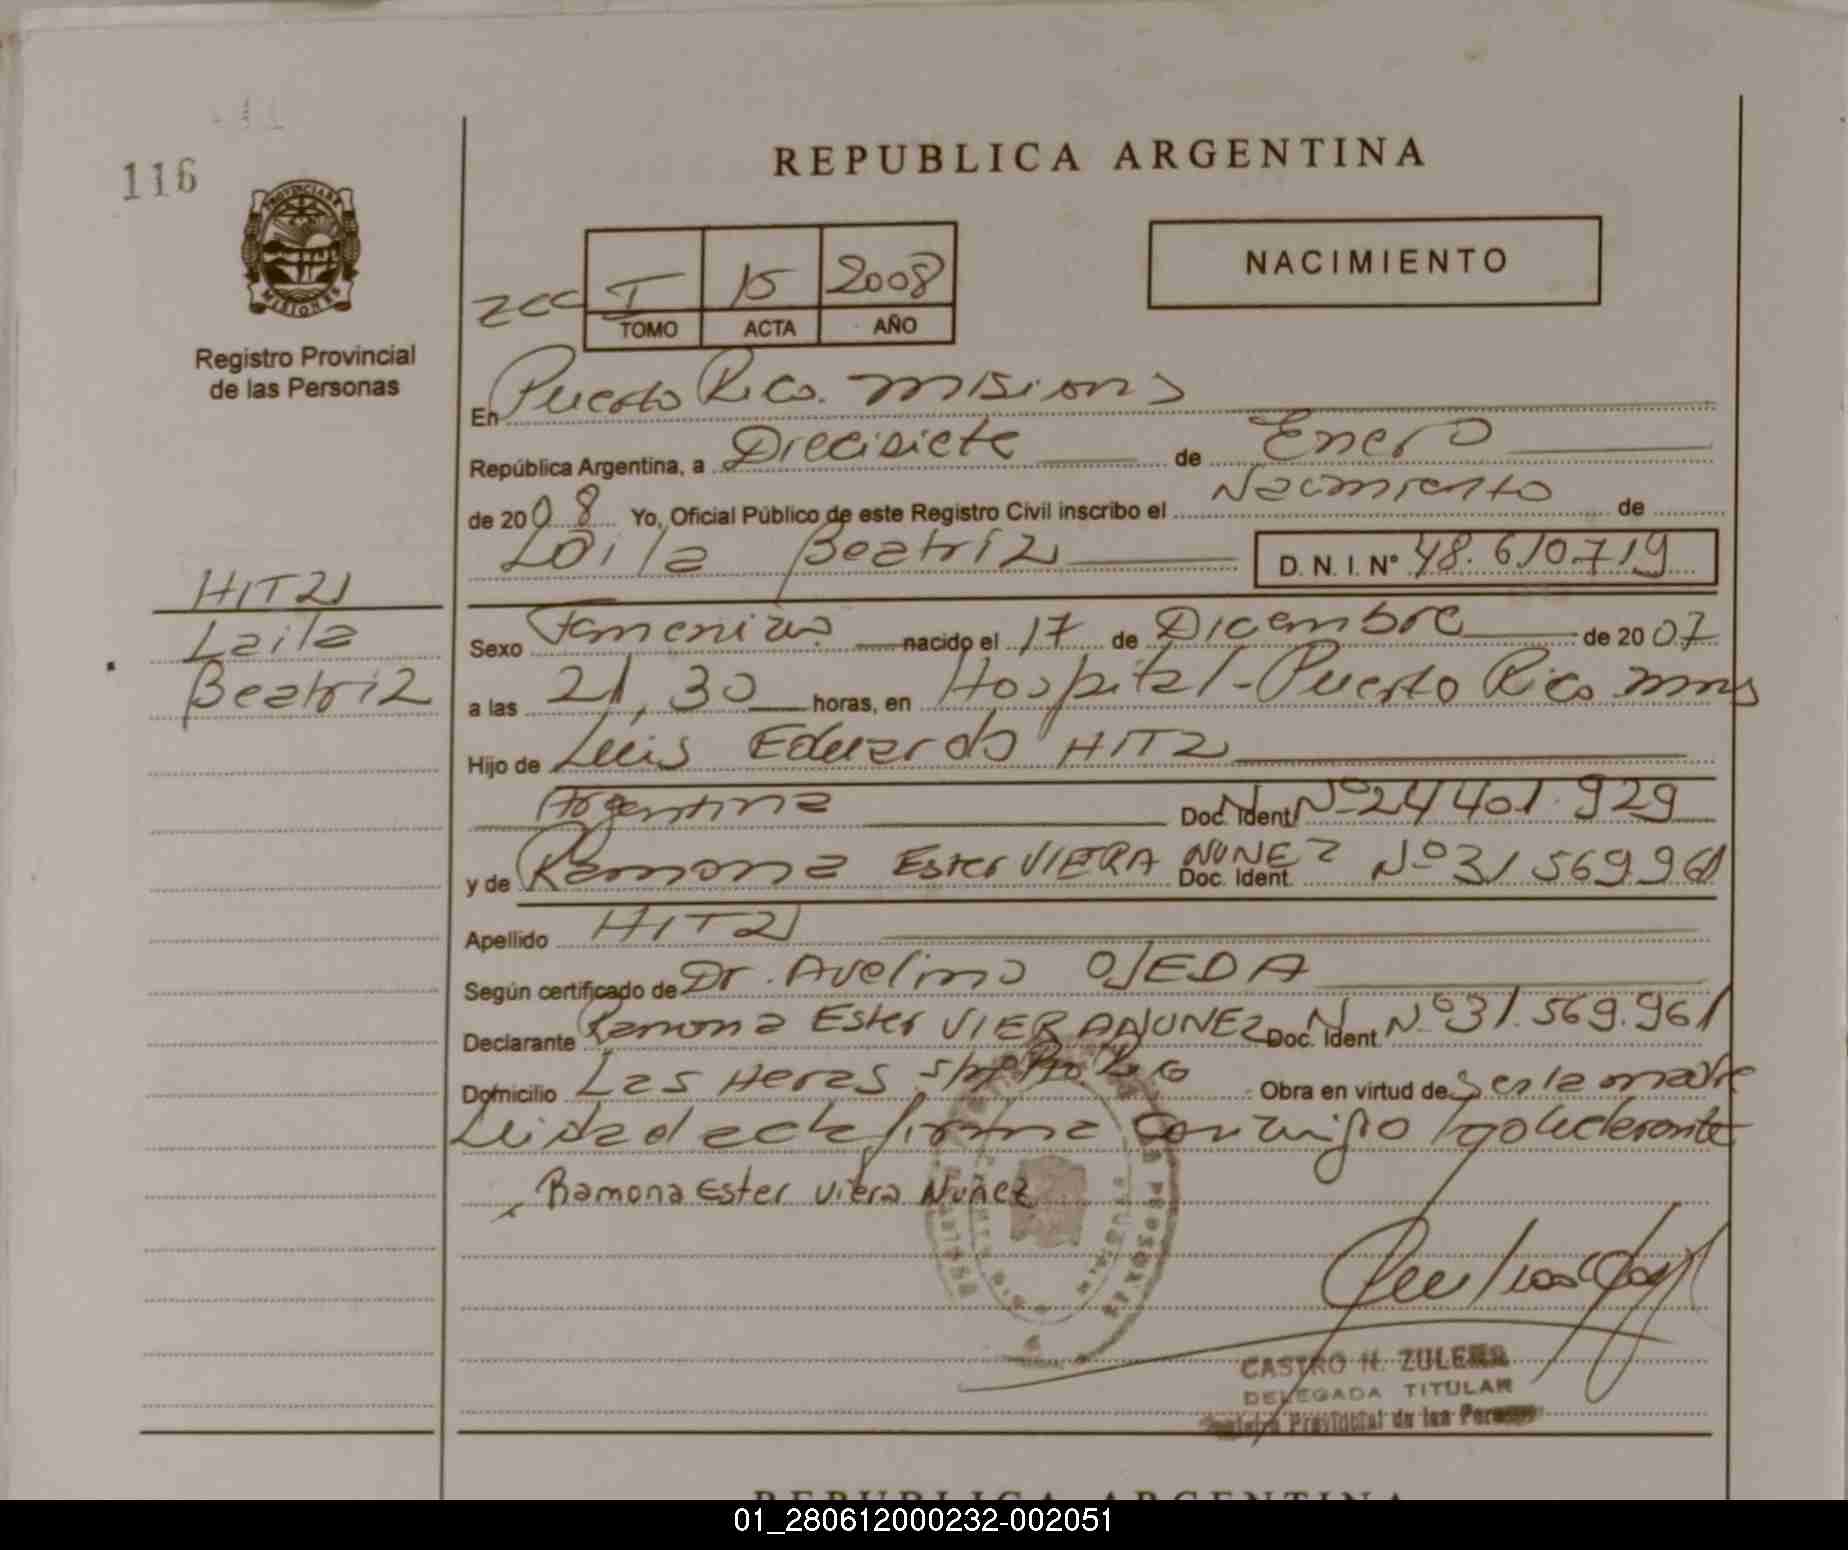 116
REPUBLICA ARGENTINA
NACIMIENTO
I 15 2008
TOMO ACTA AÑO
PROVINCIA DE
MISIONES
Registro Provincial
de las Personas
En Puerto Rico. misiones
República Argentina, a Diecisiete de Enero
de 2008 Yo, Oficial Público de este Registro Civil inscribo el Nacimiento de
Laila Beatriz D. N. I. Nº 48.610.719
HITZ
Laila
Beatriz
Sexo Femenino nacido el 17 de Dicembre de 2007
a las 21,30 horas, en Hospital - Puerto Rico mnes
Hijo de Luis Eduardo HITZ
Argentina Doc. Ident. Nº 24 401.929
y de Ramona Ester VIERA NUNEZ Doc. Ident. Nº 31 569.961
Apellido HITZ
Según certificado de Dr. Avelino OJEDA
Declarante Ramona Ester VIERA NUNEZ Doc. Ident. N Nº 31.569.961
Domicilio Las Heras s/nº Pto Rico Obra en virtud de Ser la madre
Leida el acta firma conmigo la declarante
Ramona Ester Viera Nuñez
CASTRO N. ZULEMA
DELEGADA TITULAR
Registro Provincial de las Personas
REPUBLICA ARGENTINA
01_280612000232-002051